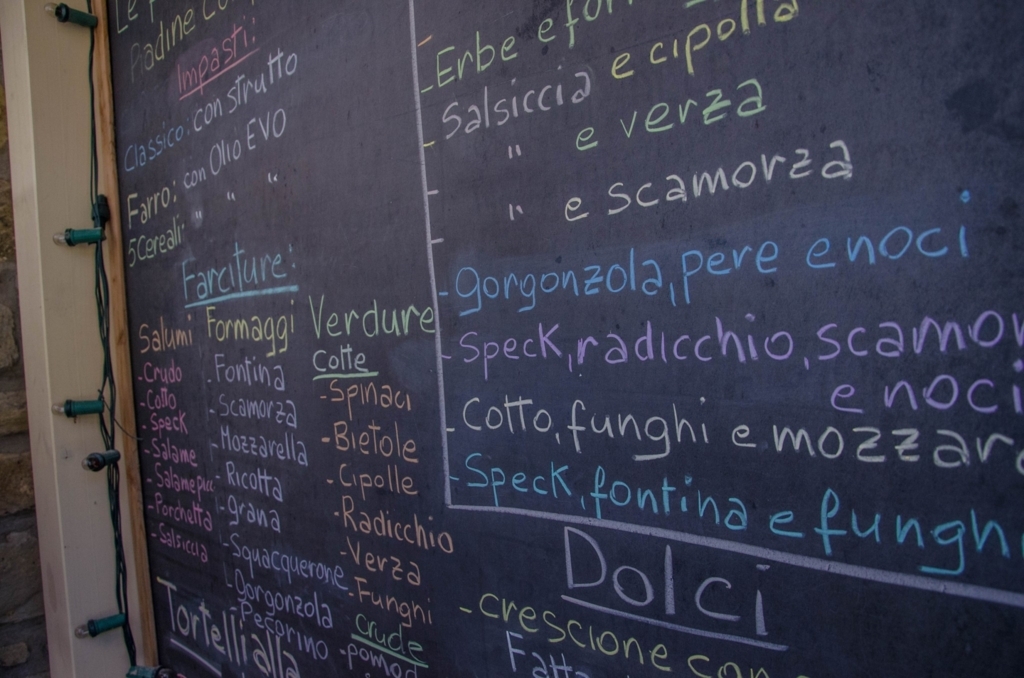 Piadine
Impasti:
Classico: con strutto
Farro: con Olio EVO
5Cereali: " " "
Farciture:
Salumi
-Crudo
-Cotto
-Speck
-Salame
-Salame
-Porchetta
-Salsiccia
Formaggi
-Fontina
-Scamorza
-Mozzarella
-Ricotta
-grana
-Squacquerone
-Gorgonzola
-Pecorino
Verdure
Cotte
-Spinaci
-Bietole
-Cipolle
-Radicchio
-Verza
-Funghi
crude
-pomod
Tortelli alla
-Erbe e for
-Salsiccia e cipolla
- " e verza
- " e scamorza
-Gorgonzola, pere e noci
-Speck, radicchio, scamor
e noci
-Cotto, funghi e mozzar
-Speck, fontina e fungh
Dolci
-crescione con
Fatt